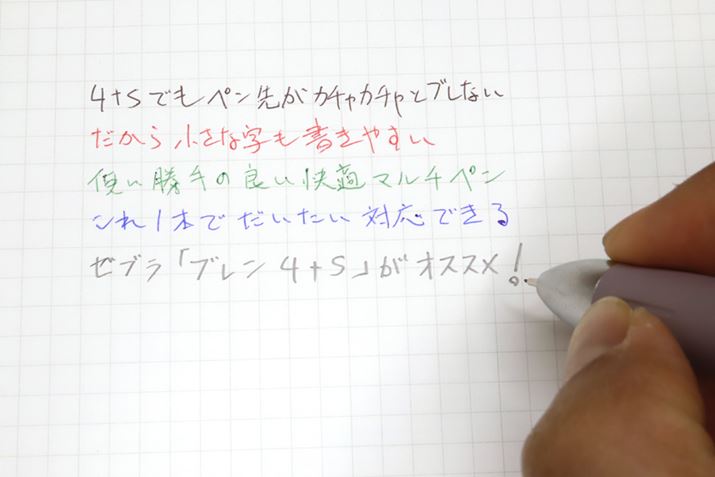 4+Sでもペン先がカチャカチャとブレない
だから小さな字も書きやすい
使い勝手の良い快適マルチペン
これ1本でだいたい対応できる
ゼブラ「ブレン4+S」がオススメ!